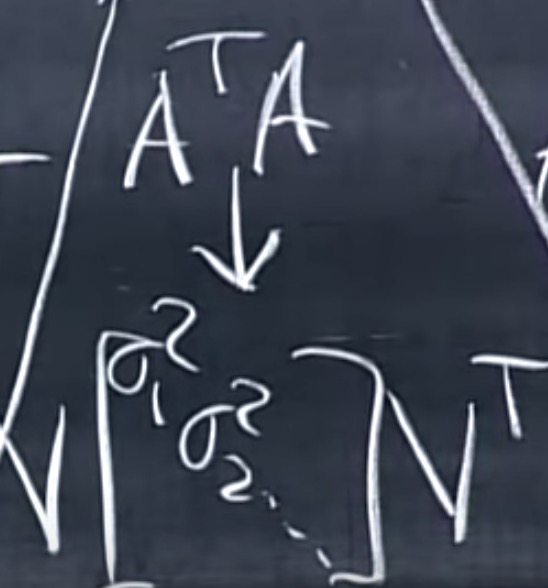 AᵀA
↓
V[σ₁² σ₂² ⋱]Vᵀ